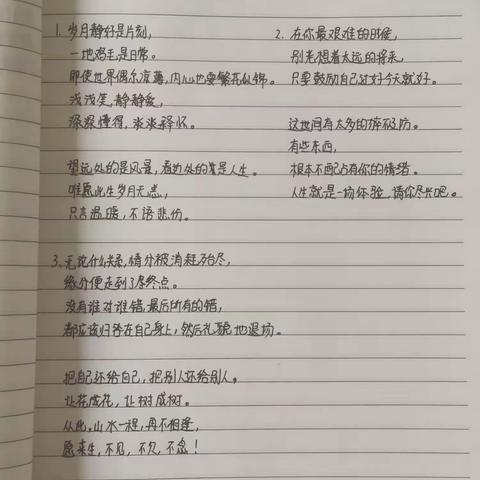 1. 岁月静好是片刻,
一地鸡毛是日常。
即使世界偶尔凉薄,内心也要繁花似锦。
浅浅笑,静静爱,
深深懂得,淡淡释怀。
望远处的是风景,看近处的才是人生。
唯愿此生岁月无恙,
只言温暖,不语悲伤。
2. 在你最艰难的时候,
别老想着太远的将来,
只要鼓励自己过好今天就好。
这世间有太多的猝不及防。
有些东西,
根本不配占有你的情绪。
人生就是一场体验,请你尽兴吧。
3. 无论什么关系,情分被消耗殆尽,
缘分便走到了尽终点。
没有谁对谁错,最后所有的错,
都应该归咎在自己身上,然后礼貌地退场。
把自己还给自己,把别人还给别人。
让花成花,让树成树。
从此,山水一程,再不相逢,
愿来生,不见,不欠,不念!